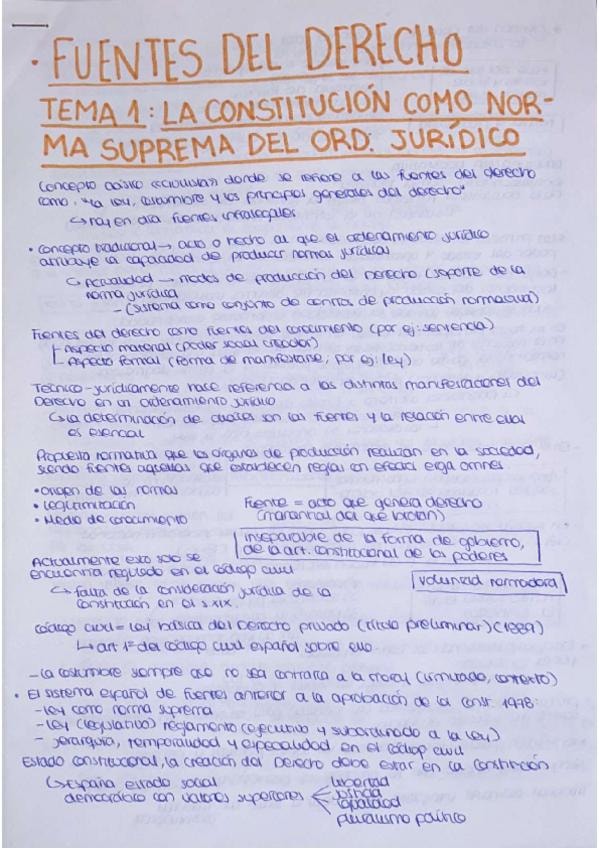 · FUENTES DEL DERECHO
TEMA 1: LA CONSTITUCIÓN COMO NOR-
MA SUPREMA DEL ORD. JURÍDICO
Concepto donde se refiere a las fuentes del derecho
como: "la ley, costumbre y los principios generales del derecho"
↳ hoy en día fuentes infralegales
· Concepto tradicional → acto o hecho al que el ordenamiento jurídico
atribuye la capacidad de producir normas jurídicas
↳ Actualidad → modos de producción del Derecho (soporte de la
norma jurídica)
- (sistema como conjunto de de producción normativa)
Fuentes del derecho como fuentes del conocimiento (por ej: sentencia)
Aspecto material (poder social creador)
Aspecto formal (forma de manifestarse, por ej: ley)
Técnico-jurídicamente hace referencia a las distintas manifestaciones del
Derecho en un ordenamiento jurídico
↳ La determinación de cuáles son las fuentes y la relación entre ellas
es esencial
Propuesta normativa que los órganos de producción realizan en la sociedad,
siendo fuentes aquellas que establecen reglas con eficacia erga omnes
· Origen de las normas
· Legitimación
· Medio de conocimiento
Fuente = acto que genera derecho
(manantial del que brotan)
inseparable de la forma de gobierno,
de la art. constitucional de los poderes
Actualmente esto solo se
encuentra regulado en el código civil
voluntad normadora
↳ Falta de la consideración jurídica de la
constitución en el s.XIX
Código civil = Ley básica del Derecho privado (título preliminar) (1889)
↳ art 1º del código civil español sobre ello
- La costumbre siempre que no sea contraria a la moral (limitado, contexto)
· El sistema español de fuentes anterior a la aprobación de la const. 1978:
- Ley como norma suprema
- Ley (legislativo) reglamento (ejecutivo y subordinado a la ley)
- jerarquía, temporalidad y especialidad en el código civil
Estado constitucional, la creación del Derecho debe estar en la Constitución
↳ España estado social
democrático con valores superiores
libertad
justicia
igualdad
pluralismo político